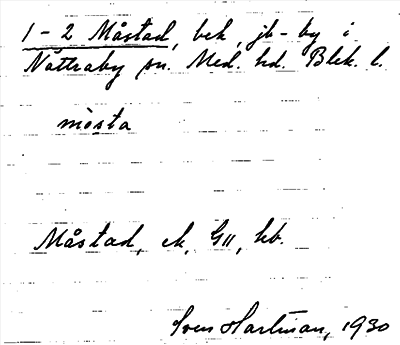 1 - 2 Måstad, bek, jb-by i
Nättraby sn. Med. hd. Blek. l.
mòsta
Måstad, ek, G11, kb.
Sven Hartman, 1930